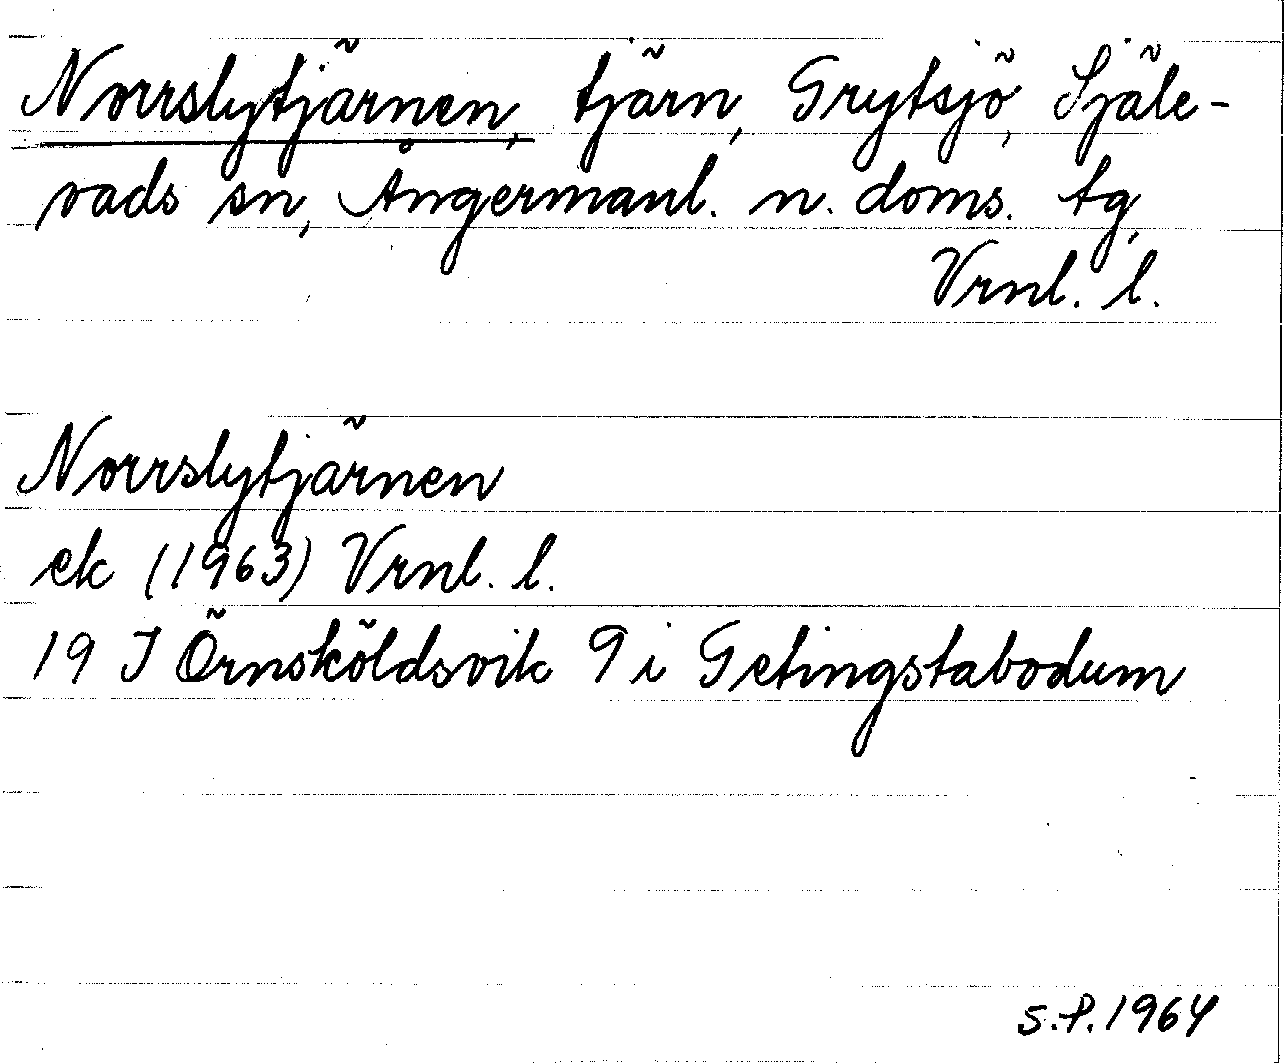 Norrslytjärnen, tjärn, Grytsjö, Själe-
vads sn, Ångermanl. n. doms. tg,
Vrnl. l.
Norrslytjärnen
ek (1963) Vrnl. l.
19 J Örnsköldsvik 9 i Getingstabodum
S.P. 1964